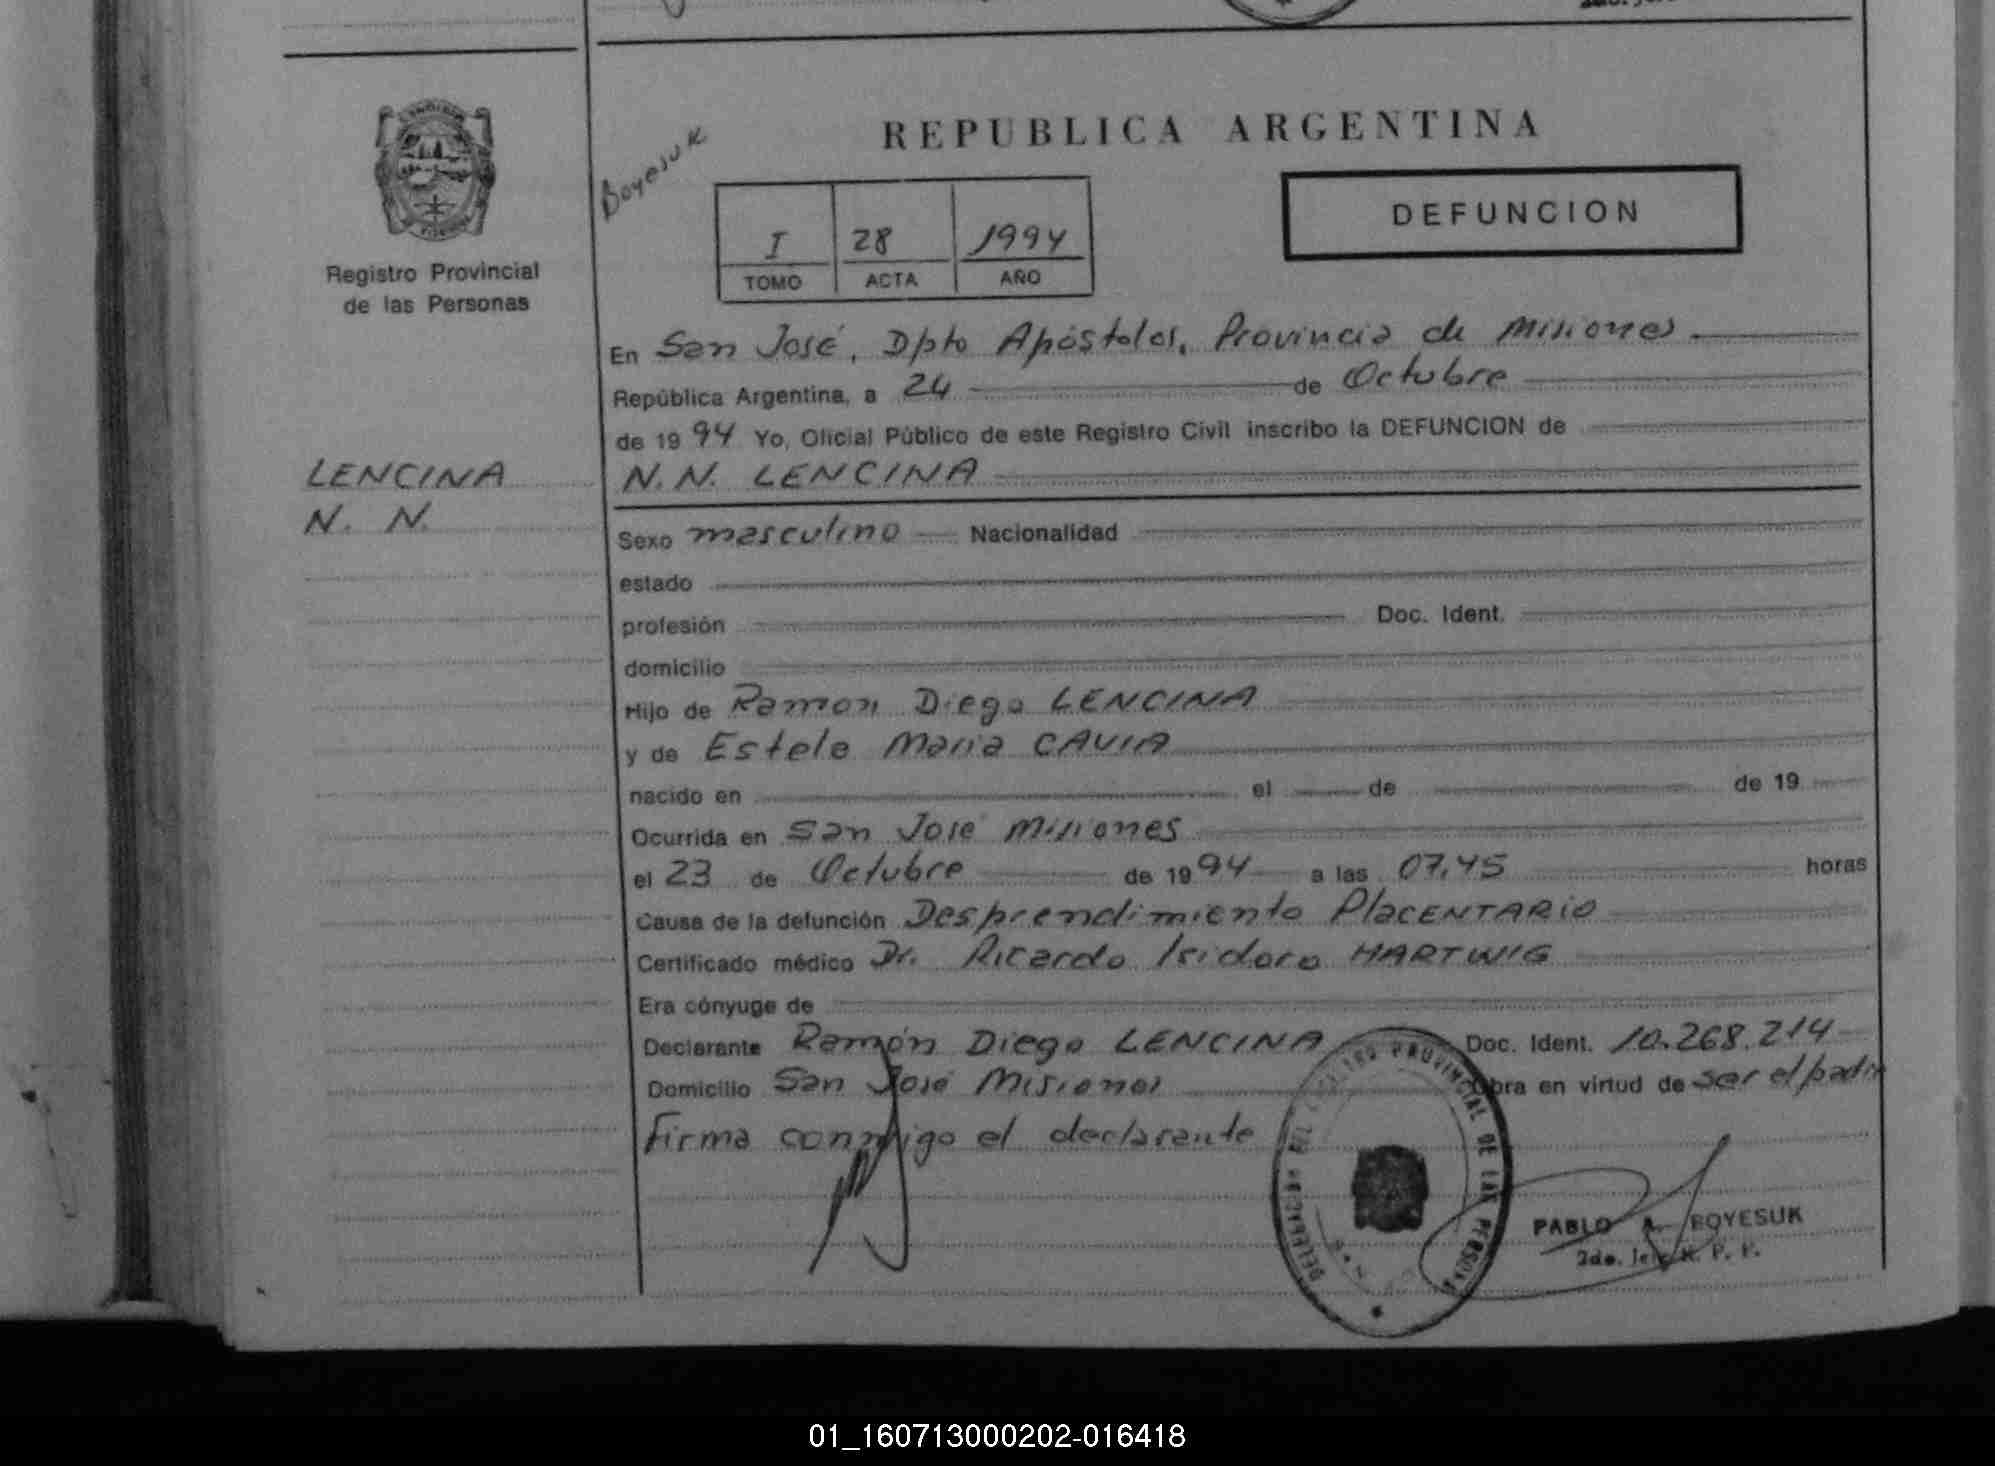 REPUBLICA ARGENTINA
Boyesuk
DEFUNCION
I 28 1994
TOMO ACTA AÑO
Registro Provincial
de las Personas
En San José, Dpto Apóstoles, Provincia de Misiones
República Argentina, a 24 de Octubre
de 1994 Yo, Oficial Público de este Registro Civil inscribo la DEFUNCION de
LENCINA
N. N.
N.N. LENCINA
Sexo masculino Nacionalidad
estado
profesión Doc. Ident.
domicilio
Hijo de Ramon Diego LENCINA
y de Estela Maria CAVIA
nacido en el de de 19
Ocurrida en San José Misiones
el 23 de Octubre de 1994 a las 07,45 horas
Causa de la defunción Desprendimiento PlaCENTARio
Certificado médico Dr. Ricardo Isidoro HARTWIG
Era cónyuge de
Declarante Ramón Diego LENCINA Doc. Ident. 10.268.214
Domicilio San José Misiones Obra en virtud de ser el padre
Firma conmigo el declarante
PROVINCIAL DE LAS PERSONAS
PABLO A. BOYESUK
2do. Jefe R. P. P.
01_160713000202-016418